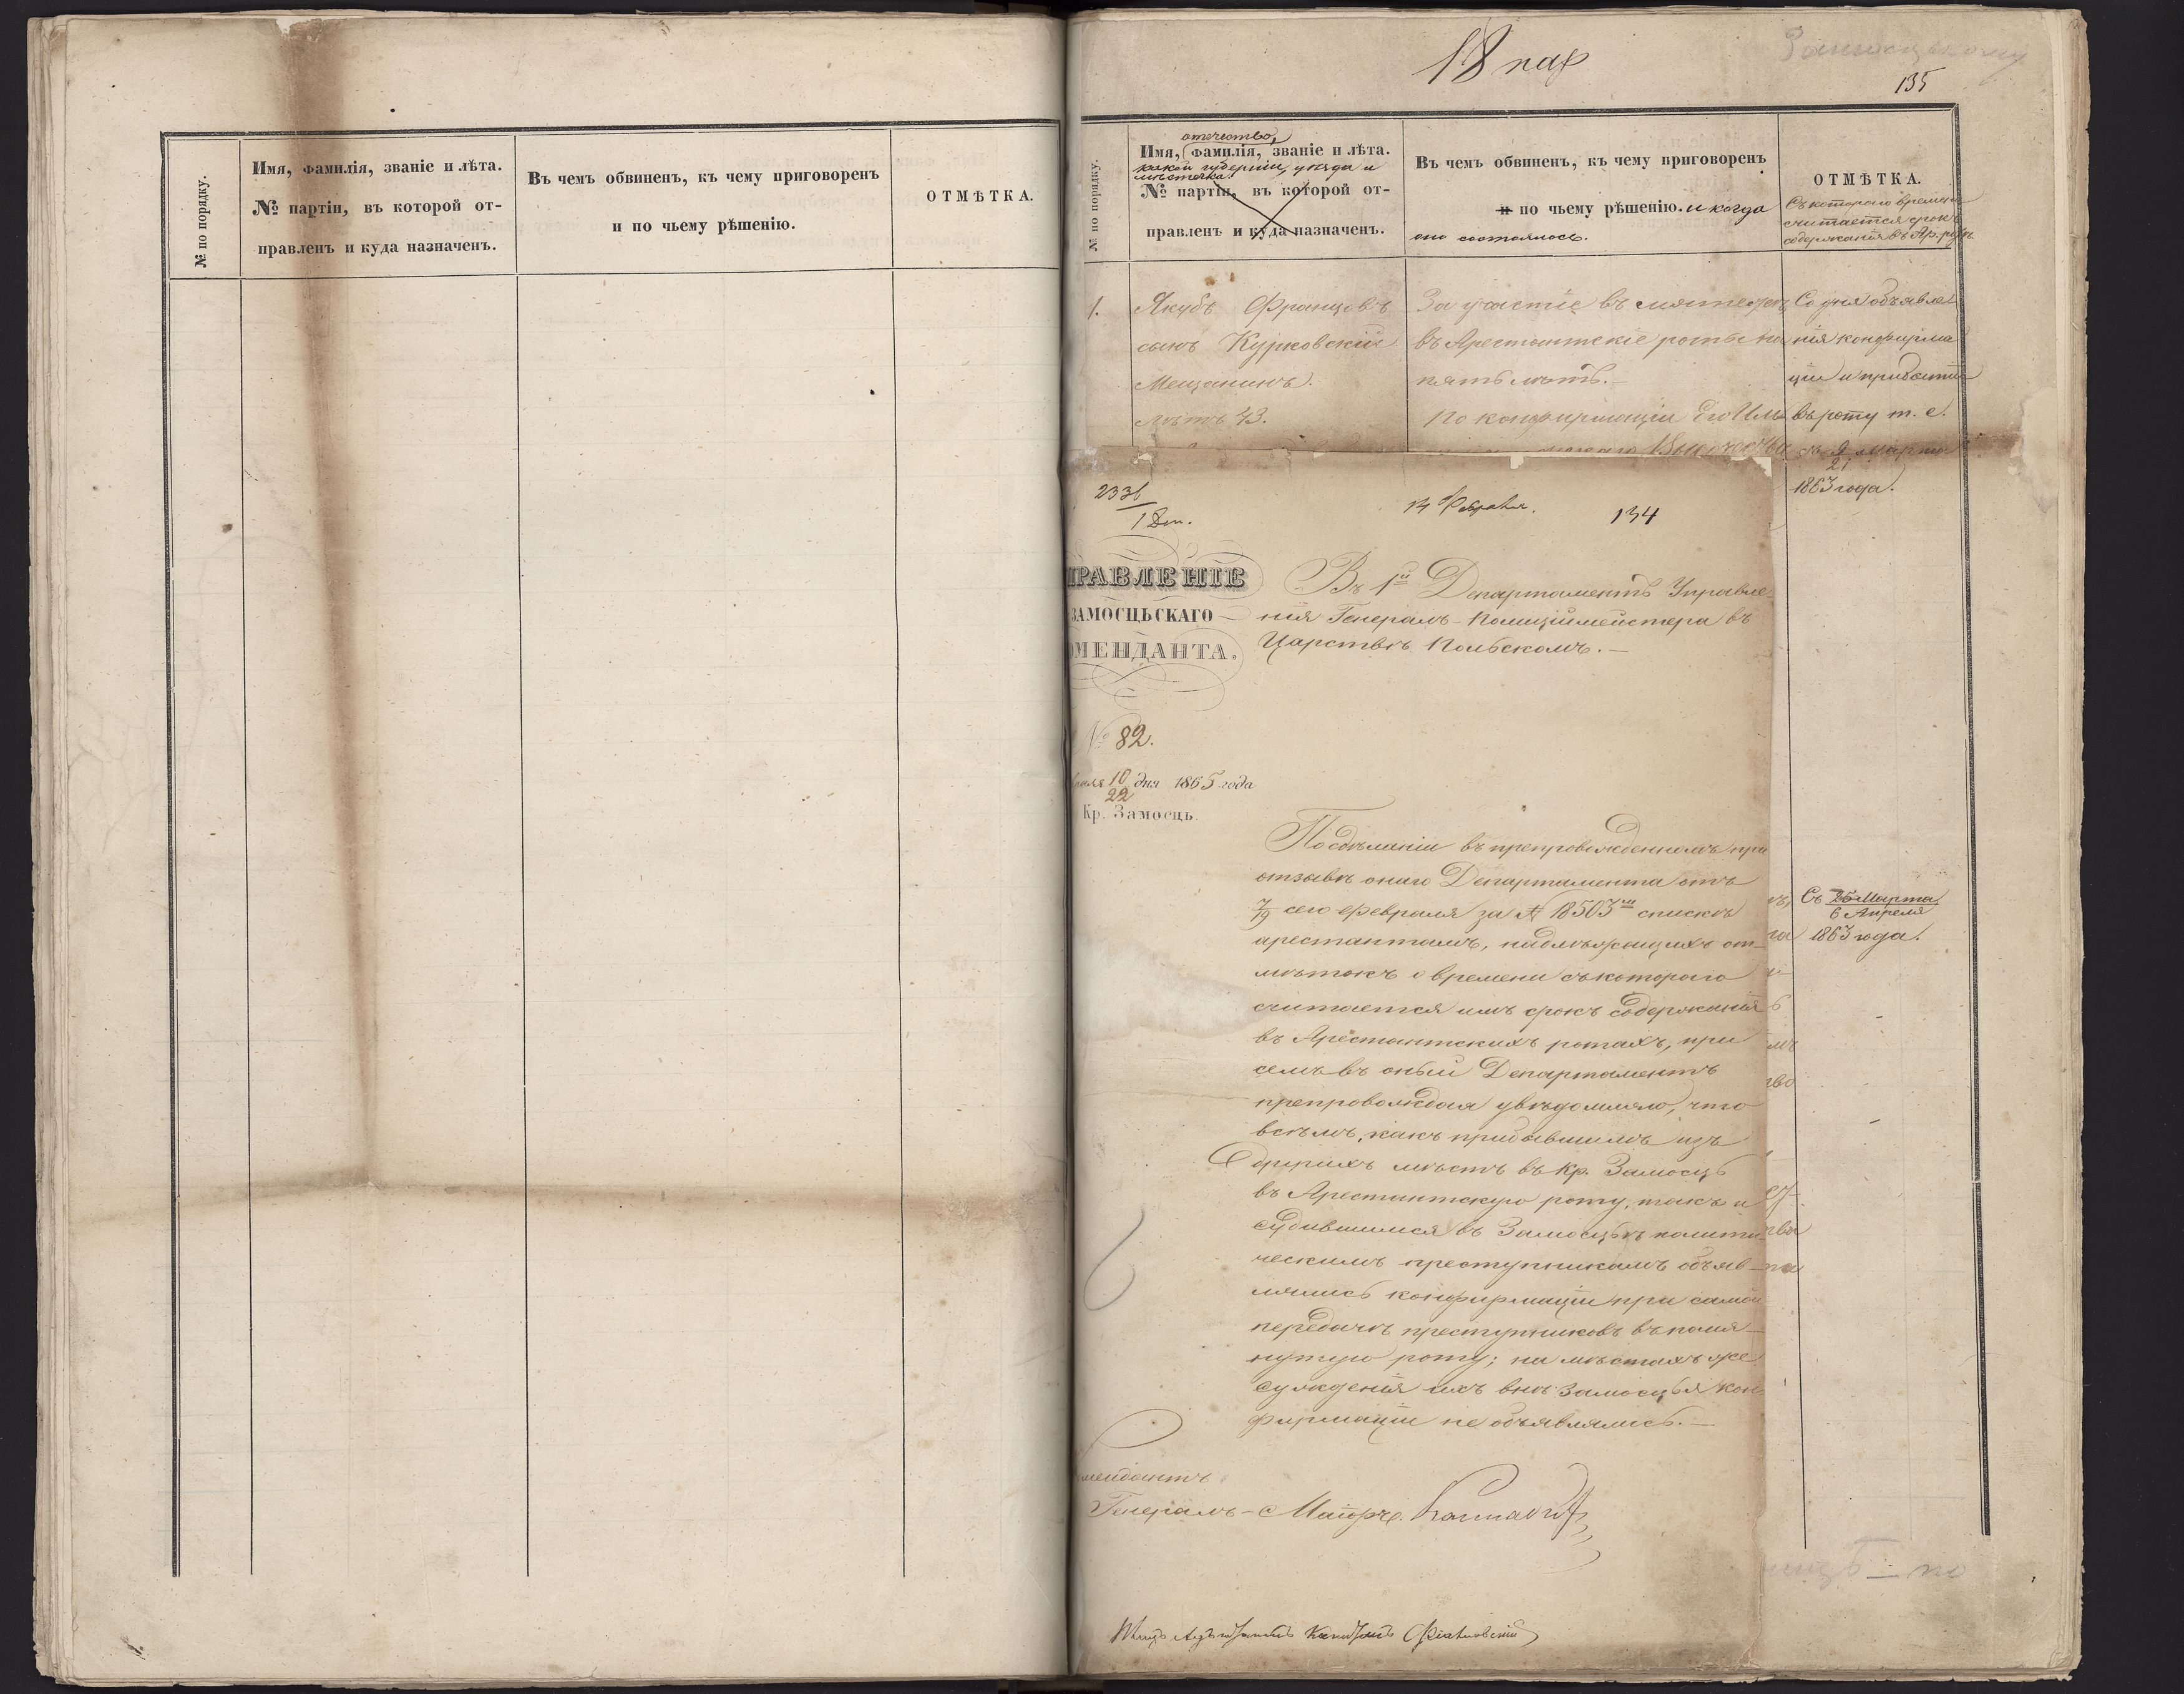 № по порядку.
Имя, фамилія, званіе и лѣта.
№ партіи, въ которой от-
правленъ и куда назначенъ.
Въ чемъ обвиненъ, къ чему приговоренъ
и по чьему рѣшенію.
ОТМѢТКА.
18
135
№ по порядку.
отчество,
Имя, фамилія, званіе и лѣта.
какой губерніи, уѣзда и
мѣстечка.
№ партіи, въ которой от-
правленъ и куда назначенъ.
Въ чемъ обвиненъ, къ чему приговоренъ
и по чьему рѣшенію. и когда
оно состоялось.
ОТМѢТКА.
Съ котораго времени
считается срокъ
содержанія въ Ар. ротѣ
1.
Якубъ Францовъ
сынъ Курковскій
Мещанинъ.
Лѣтъ 43.
За участіе въ мятежѣ
въ Арестантскіе роты на
пять лѣтъ.—
По конфирмаціи Его Им-
Высочества
Со дня объявле-
нія конфирма-
ціи и прибытія
въ роту т. е.
съ 9 марта
21
1863 года.
1 Деп.
14 Февраля.
134
ПРАВЛЕНІЕ
ЗАМОСЦЬСКАГО
ОМЕНДАНТА.
Въ 1й Департаментъ Управле-
нія Генералъ-Полиціймейстера въ
Царствѣ Польскомъ.—
№ 82.
раля 10 дня 1865 года
22
Кр. Замосць.
По сдѣланіи въ препровожденномъ при
отзывѣ онаго Департамента отъ
7/19 сего февраля за № 18503 спискѣ
арестантамъ, надлежащихъ от-
мѣтокъ о времени съ котораго
считается имъ срокъ содержанія
въ Арестантскихъ ротахъ, при
семъ въ оный Департаментъ
препровождая увѣдомляю, что
всѣмъ, какъ прибывшимъ изъ
другихъ мѣстъ въ кр. Замосць
въ Арестантскую роту, такъ и
судившимся въ Замосцьѣ полити-
ческимъ преступникамъ объяв-
лялись конфирмаціи при самой
передачѣ преступниковъ въ помя-
нутую роту; на мѣстахъ же
сужденія ихъ внѣ Замосцья кон-
фирмаціи не объявлялись.—
Съ 25 Марта
6 Апреля
1863 года.
мендантъ
Генералъ-Маіоръ